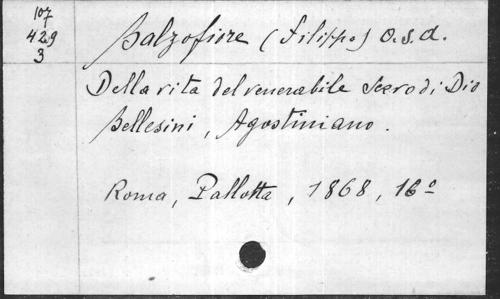 107
429
3
Balzofiore (Filippo) O.s.d.
Della vita del venerabile Servo di Dio
Bellesini, Agostiniano.
Roma, Pallotta, 1868, 16º